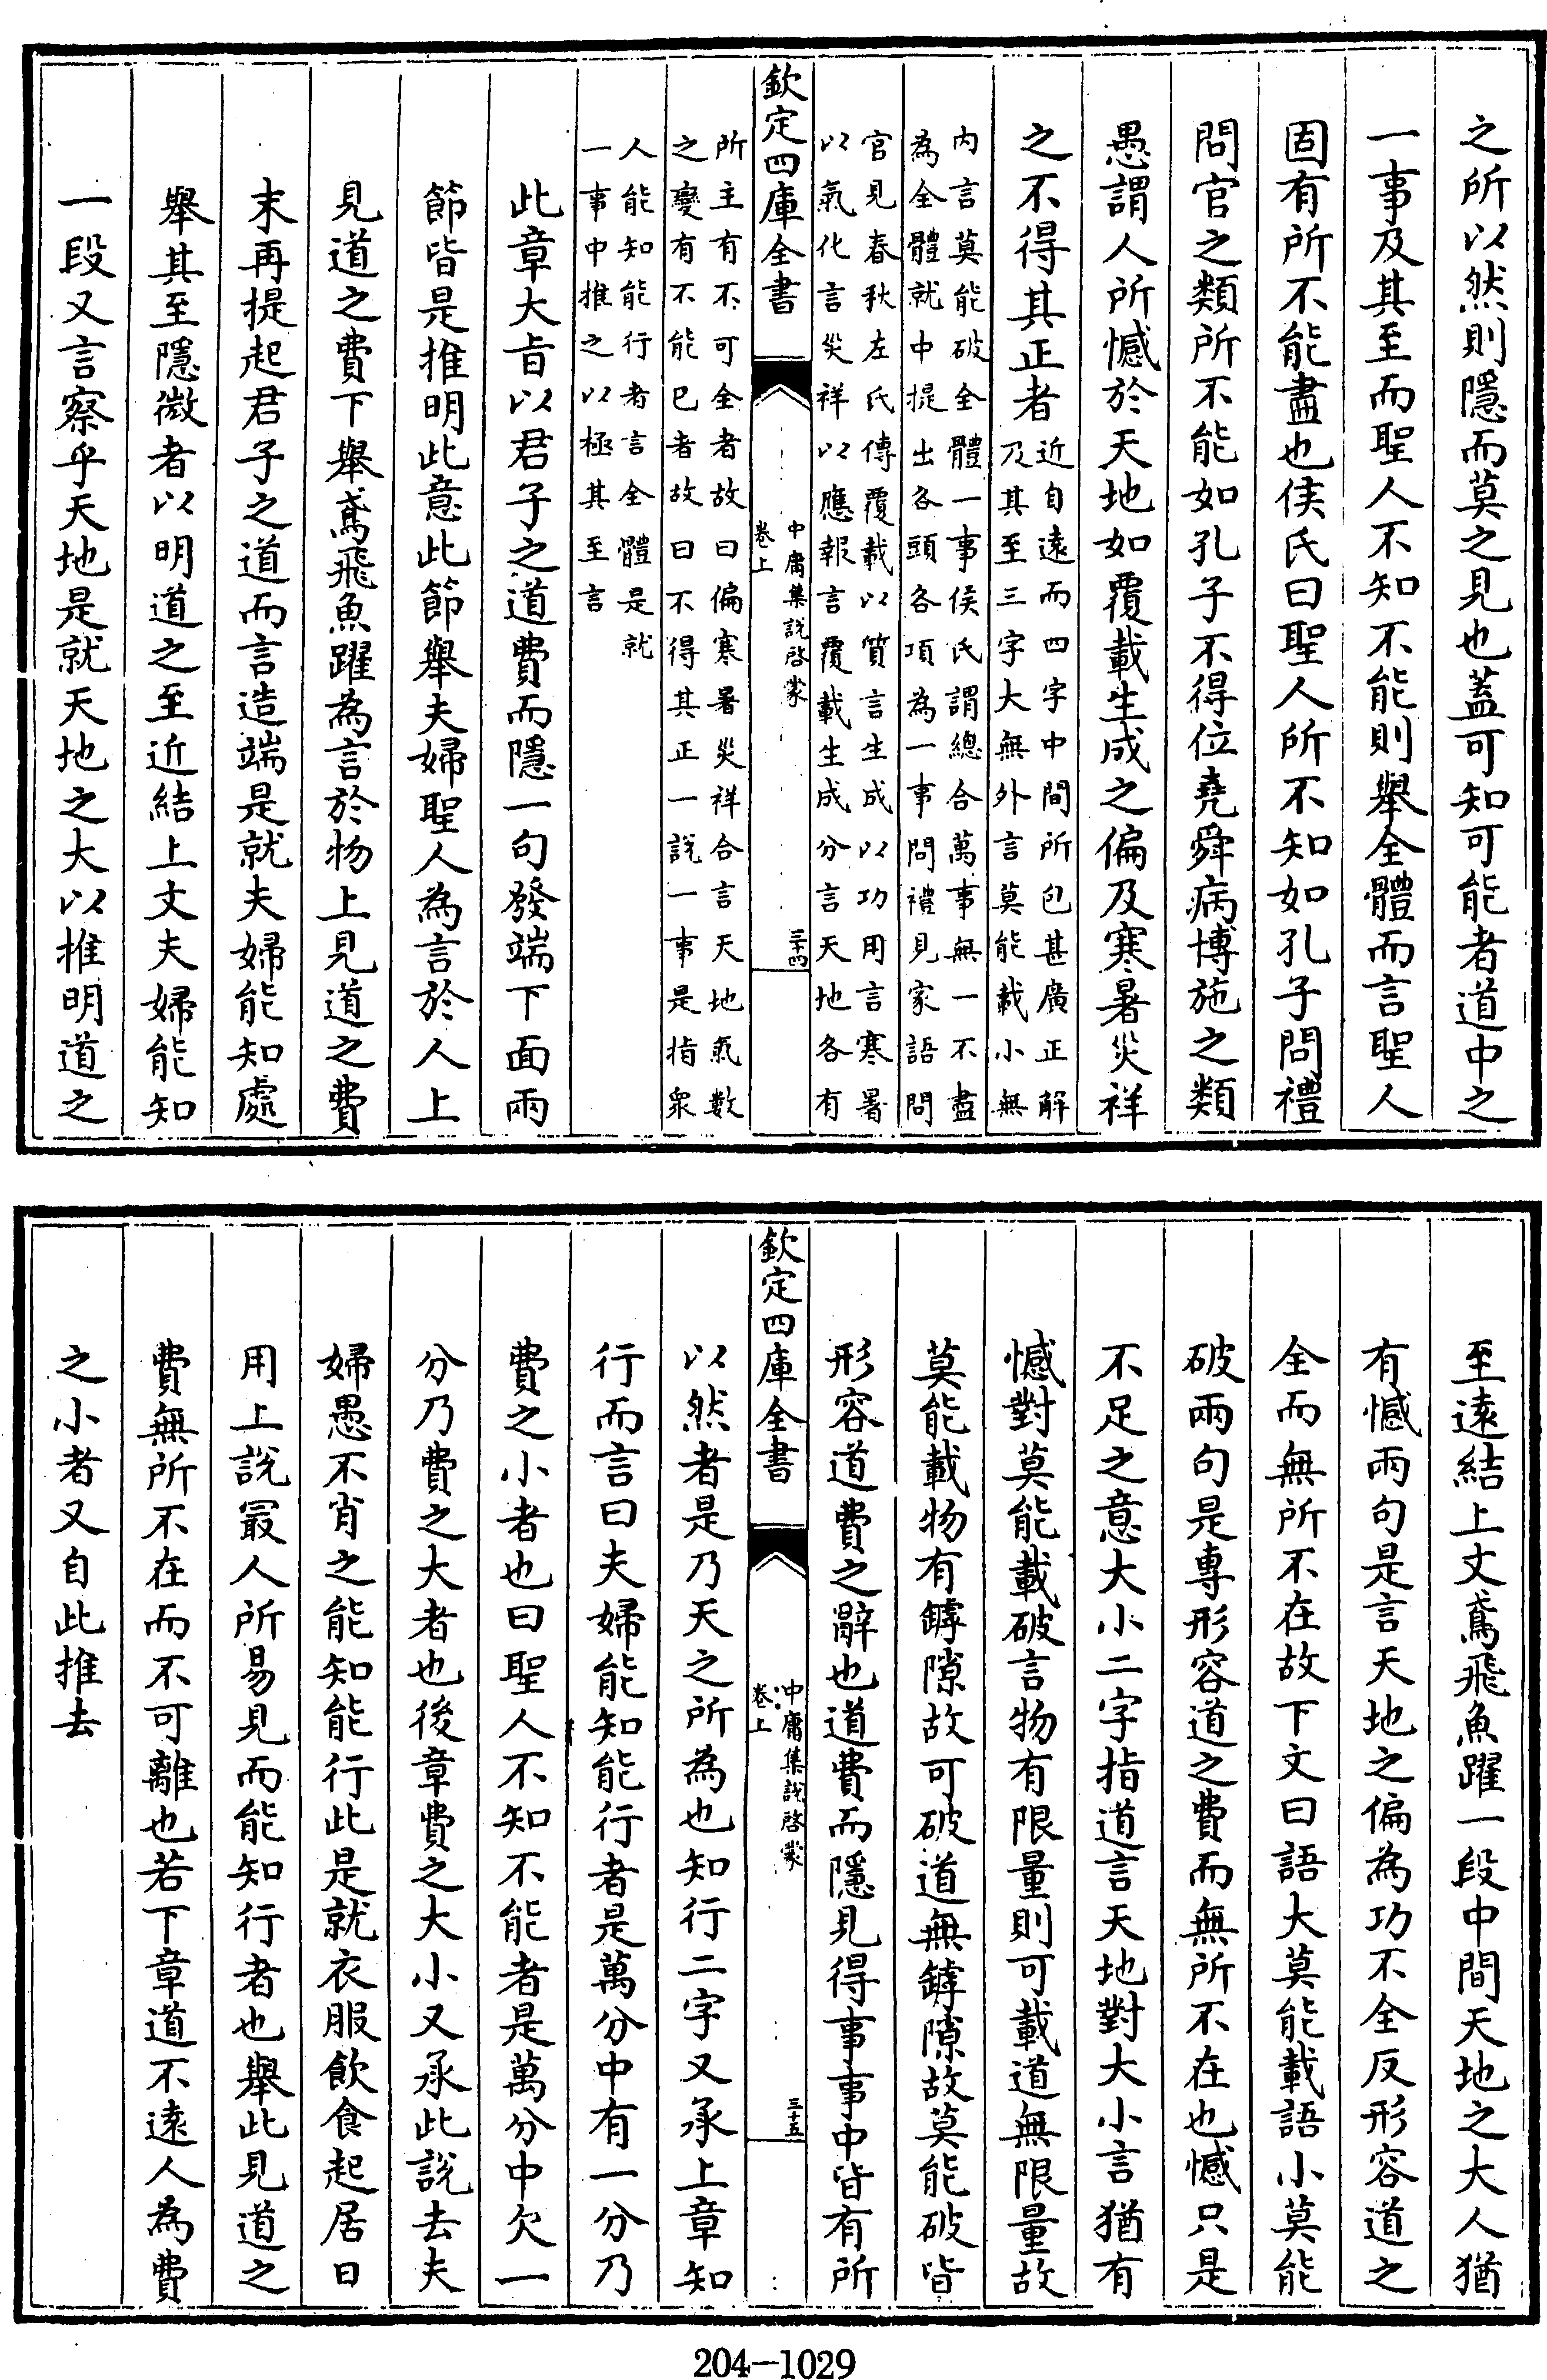 之所以然則隱而莫之見也蓋可知可能者道中之
一事及其至而聖人不知不能則舉全體而言聖人
固有所不能盡也侯氏曰聖人所不知如孔子問禮
問官之類所不能如孔子不得位堯舜病博施之類
愚謂人所憾於天地如覆載生成之偏及寒暑災祥
之不得其正者
近自遠而四字中間所包甚廣正解
及其至三字大無外言莫能載小無
内言莫能破全體一事侯氏謂總合萬事無一不盡
為全體就中提出各頭各項為一事問禮見家語問
官見春秋左氏傳覆載以質言生成以功用言寒暑
以氣化言災祥以應報言覆載生成分言天地各有
欽定四庫全書
中庸集說啓蒙
卷上
三十四
所主有不可全者故曰偏寒暑災祥合言天地氣數
之變有不能已者故曰不得其正一說一事是指衆
人能知能行者言全體是就
一事中推之以極其至言
此章大旨以君子之道費而隱一句發端下面兩
節皆是推明此意此節舉夫婦聖人為言於人上
見道之費下舉鳶飛魚躍為言於物上見道之費
末再提起君子之道而言造端是就夫婦能知處
舉其至隱微者以明道之至近結上文夫婦能知
一段又言察乎天地是就天地之大以推明道之
至遠結上文鳶飛魚躍一段中間天地之大人猶
有憾兩句是言天地之偏為功不全反形容道之
全而無所不在故下文曰語大莫能載語小莫能
破兩句是專形容道之費而無所不在也憾只是
不足之意大小二字指道言天地對大小言猶有
憾對莫能載破言物有限量則可載道無限量故
莫能載物有罅隙故可破道無罅隙故莫能破皆
形容道費之辭也道費而隱見得事事中皆有所
欽定四庫全書
中庸集說啓蒙
卷上
三十五
以然者是乃天之所為也知行二字又承上章知
行而言曰夫婦能知能行者是萬分中有一分乃
費之小者也曰聖人不知不能者是萬分中欠一
分乃費之大者也後章費之大小又承此說去夫
婦愚不肖之能知能行此是就衣服飲食起居日
用上說最人所易見而能知行者也舉此見道之
費無所不在而不可離也若下章道不遠人為費
之小者又自此推去
204-1029